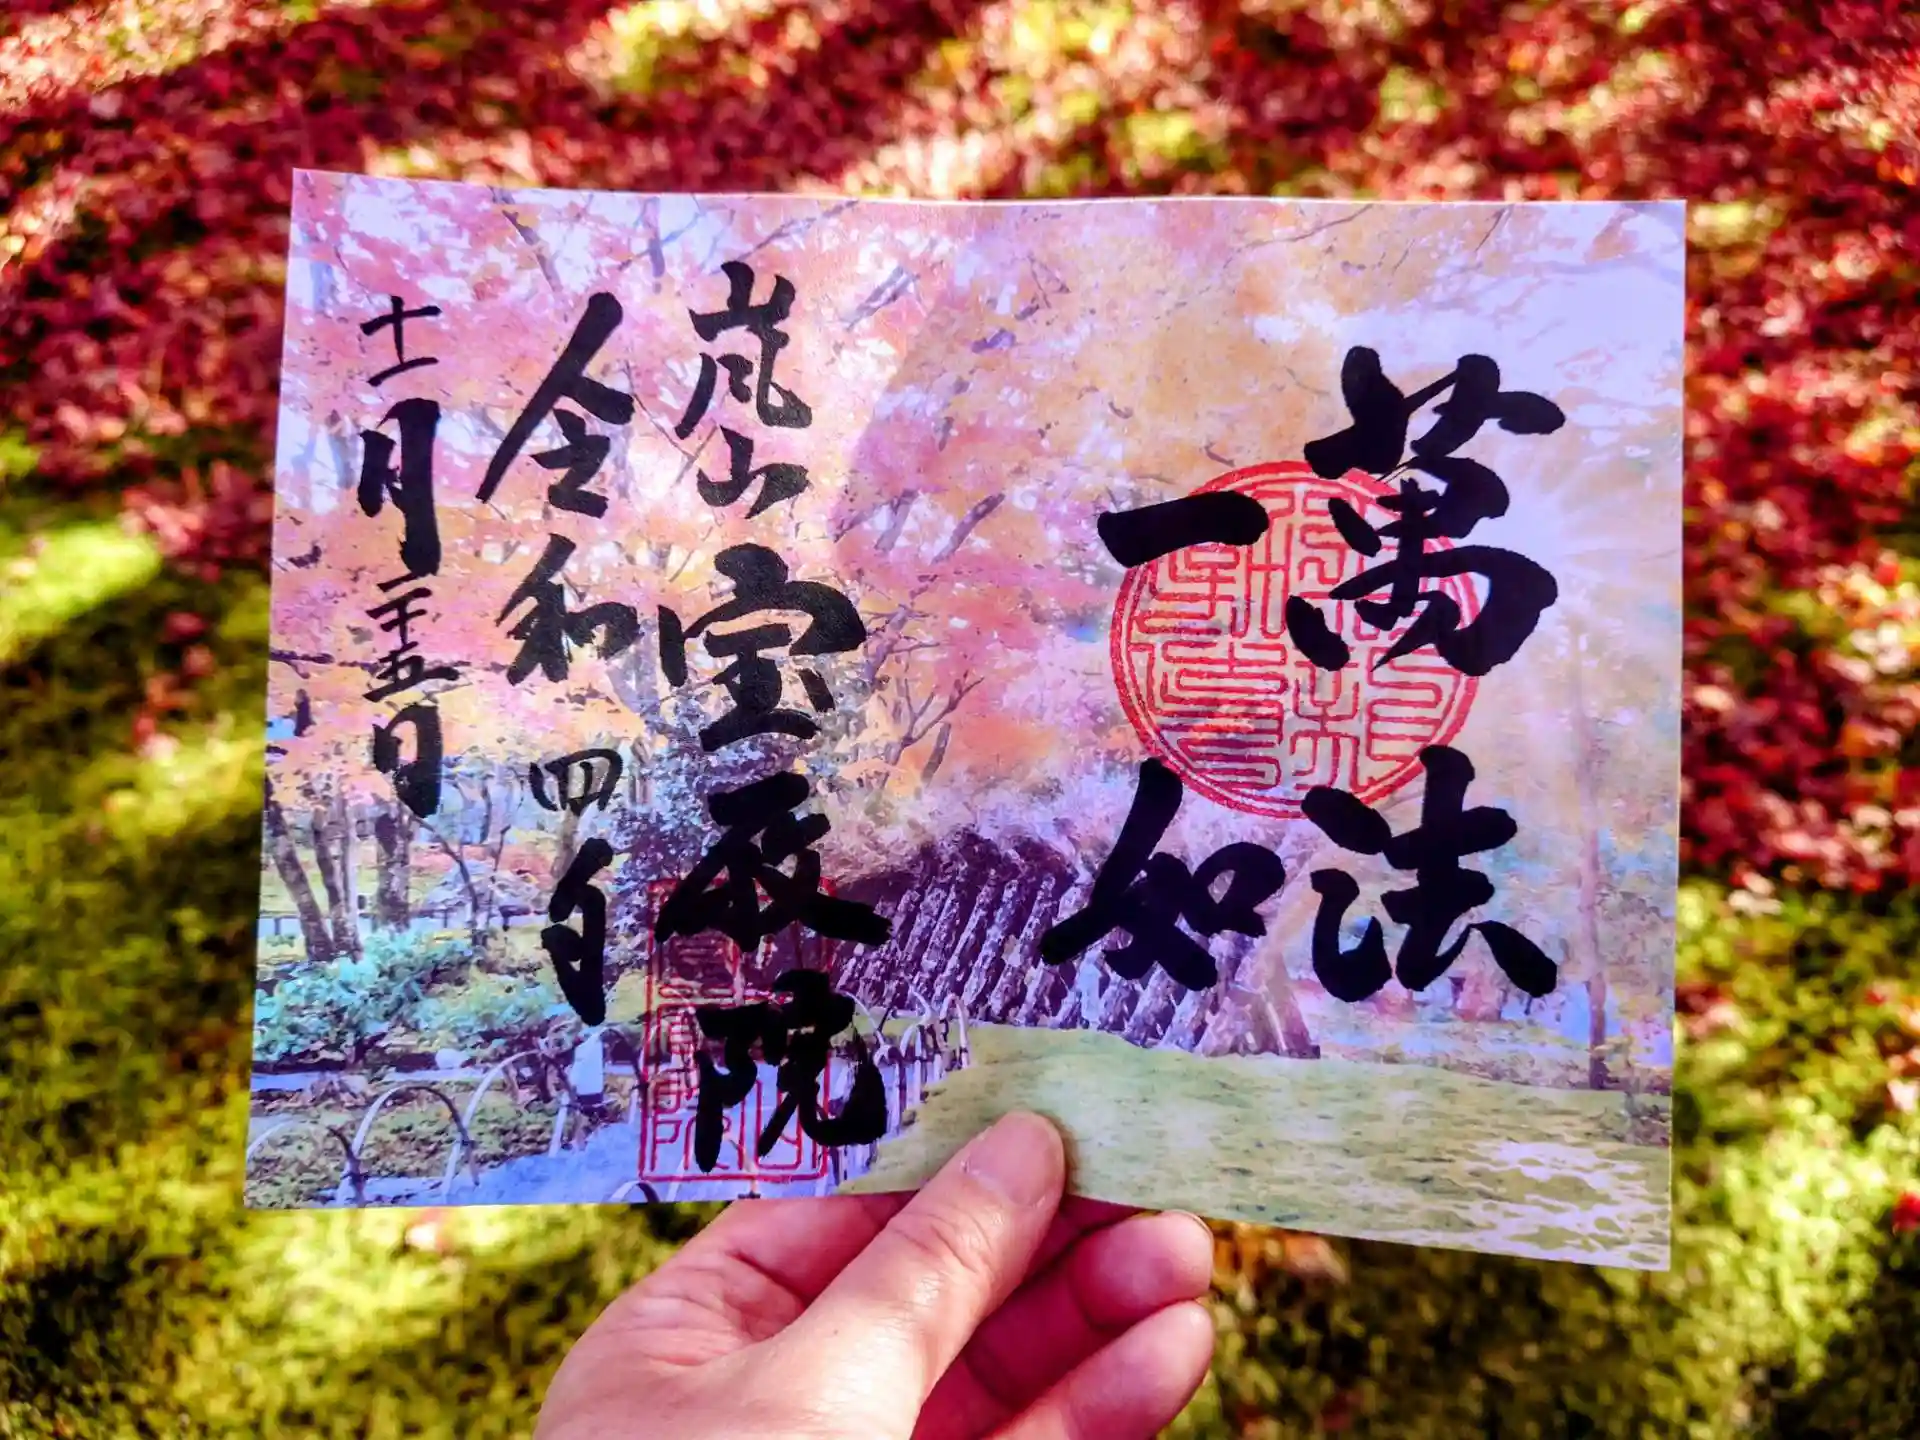 萬法
一如
嵐山 宝厳院
令和四年
十一月二十五日